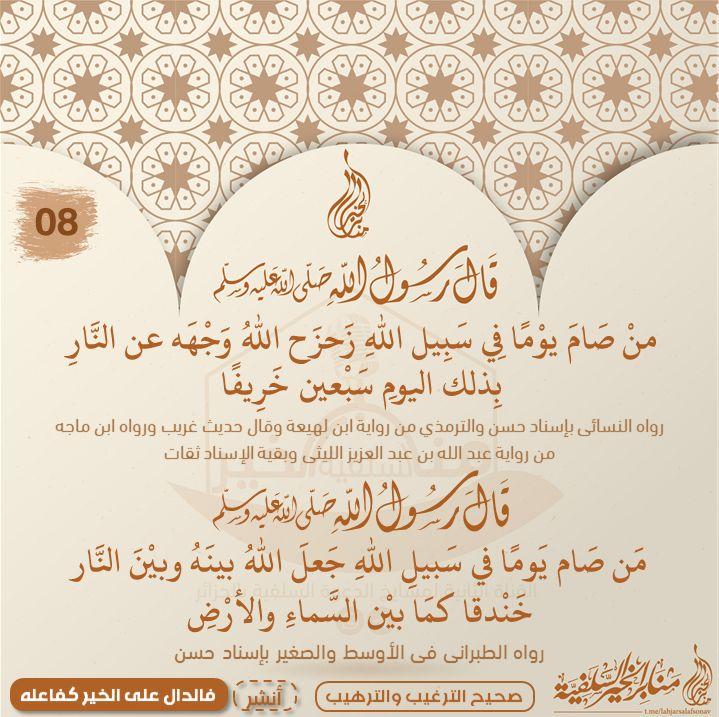 08
منابر الخير
قَالَ رَسُولُ اللّٰهِ صَلَّى اللّٰهُ عَلَيْهِ وَسَلَّمَ
منْ صَامَ يوْمًا فِي سَبِيل اللهِ زَحزَح اللهُ وَجْهَه عن النَّارِ
بِذلك اليومِ سَبْعين خَرِيفًا
رواه النسائى بإسناد حسن والترمذي من رواية ابن لهيعة وقال حديث غريب ورواه ابن ماجه
من رواية عبد الله بن عبد العزيز الليثى وبقية الإسناد ثقات
قَالَ رَسُولُ اللّٰهِ صَلَّى اللّٰهُ عَلَيْهِ وَسَلَّمَ
مَن صَام يَومًا في سَبيلِ اللهِ جَعلَ اللهُ بينَهُ وبيْنَ النَّار
خَنْدقا كمَا بيْن السَّماءِ والأرْضِ
رواه الطبرانى فى الأوسط والصغير بإسناد حسن
منابر الخير السلفية
t.me/lahjarsalafsonav
صحيح الترغيب والترهيب
أنشر
فالدال على الخير كفاعله